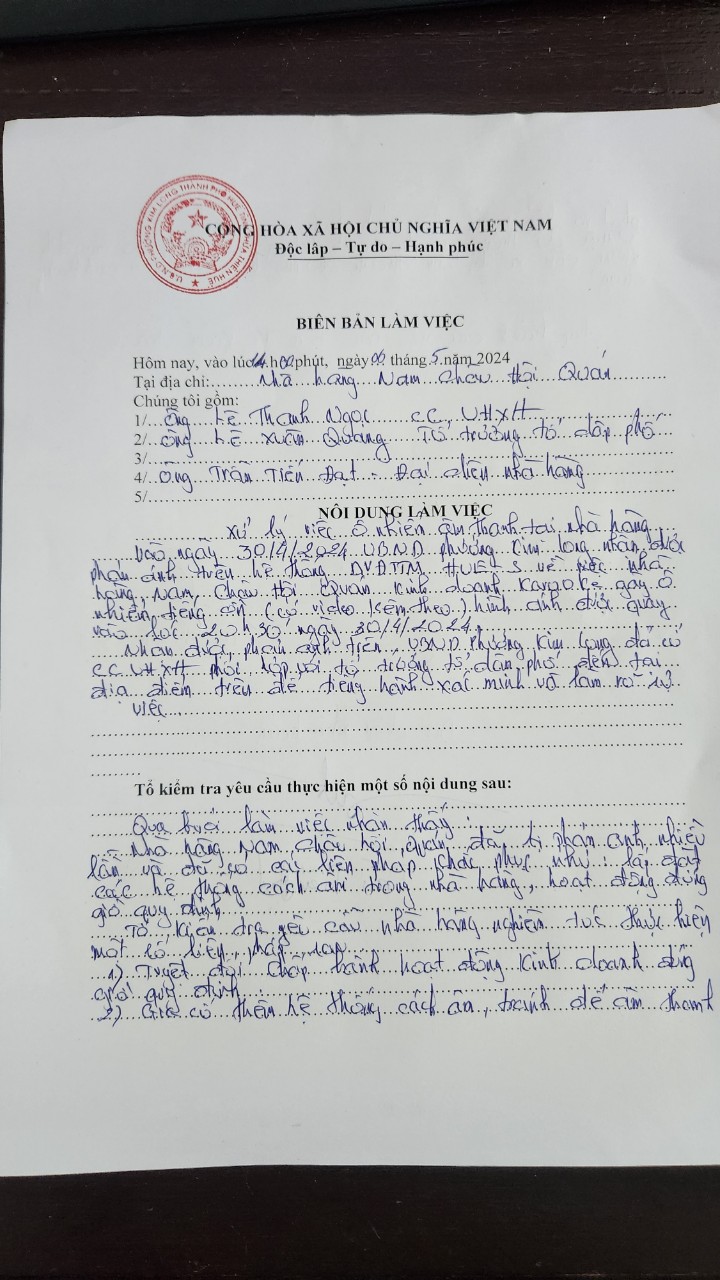 U.B.N.D PHƯỜNG KIM LONG THÀNH PHỐ HUẾ TỈNH THỪA THIÊN HUẾ
CỘNG HÒA XÃ HỘI CHỦ NGHĨA VIỆT NAM
Độc lập – Tự do – Hạnh phúc
BIÊN BẢN LÀM VIỆC
Hôm nay, vào lúc 14.h 00 phút, ngày 06 tháng 5 năm 2024
Tại địa chỉ: Nhà hàng Nam Châu Hội Quán
Chúng tôi gồm:
1/ Ông Lê Thanh Ngọc CC, VHXH
2/ Ông Lê Xuân Quảng Tổ trưởng tổ dân phố
3/
4/ Ông Trần Tiến Đạt - Đại diện nhà hàng
5/
NÔI DUNG LÀM VIỆC
Xử lý việc ô nhiễm âm thanh tại nhà hàng
Vào ngày 30/4/2024 UBND phường Kim Long nhận được
phản ánh trên hệ thống DVĐTTM HUE-S về việc nhà
hàng Nam Châu Hội Quán kinh doanh Karaoke gây ô
nhiễm tiếng ồn (có video kèm theo) hình ảnh được quay
vào lúc 20h30 ngày 30/4/2024.
Nhận được phản ánh trên, UBND Phường Kim Long đã cử
CC VHXH phối hợp với tổ trưởng tổ dân phố đến tại
địa điểm trên để tiếng hành xác minh và làm rõ sự
việc.
Tổ kiểm tra yêu cầu thực hiện một số nội dung sau:
Qua buổi làm việc nhận thấy:
- Nhà hàng Nam Châu hội quán đã bị phản ánh nhiều
lần và đã có các biện pháp khắc phục như: lắp đặt
các hệ thống cách âm trong nhà hàng, hoạt động đúng
giờ quy định.
Tổ kiểm tra yêu cầu nhà hàng nghiêm túc thực hiện
một số biện pháp sau
1) Tuyệt đối chấp hành hoạt động kinh doanh đúng
giờ quy định
2) Gia cố thêm hệ thống cách âm, tránh để âm thanh